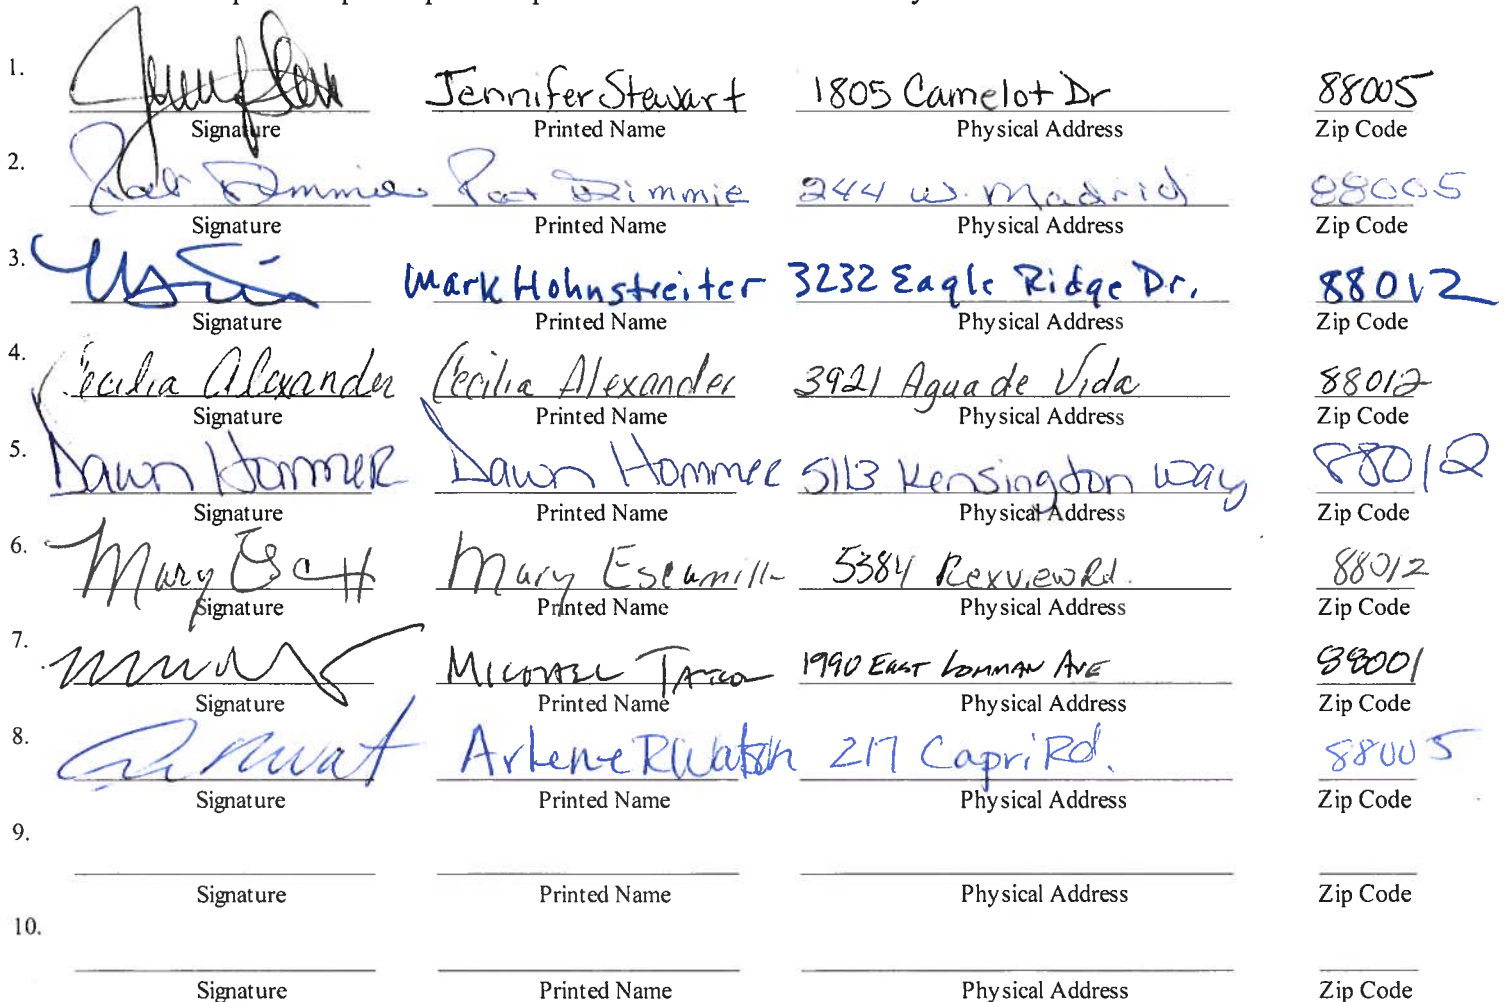 1.
Jennifer Stewart 1805 Camelot Dr 88005
Signature Printed Name Physical Address Zip Code
2.
Pat Dimmie Pat Dimmie 244 W. Madrid 88005
Signature Printed Name Physical Address Zip Code
3.
Mark Hohnstreiter 3232 Eagle Ridge Dr. 88012
Signature Printed Name Physical Address Zip Code
4.
Cecilia Alexander Cecilia Alexander 3921 Agua de Vida 88012
Signature Printed Name Physical Address Zip Code
5.
Dawn Hommer Dawn Hommer 5113 Kensington Way 88012
Signature Printed Name Physical Address Zip Code
6.
Mary Mary Escamilla 5384 Rexview Rd. 88012
Signature Printed Name Physical Address Zip Code
7.
Michael 1990 East Lohman Ave 88001
Signature Printed Name Physical Address Zip Code
8.
Arlene R Watson 217 Capri Rd. 88005
Signature Printed Name Physical Address Zip Code
9.
Signature Printed Name Physical Address Zip Code
10.
Signature Printed Name Physical Address Zip Code